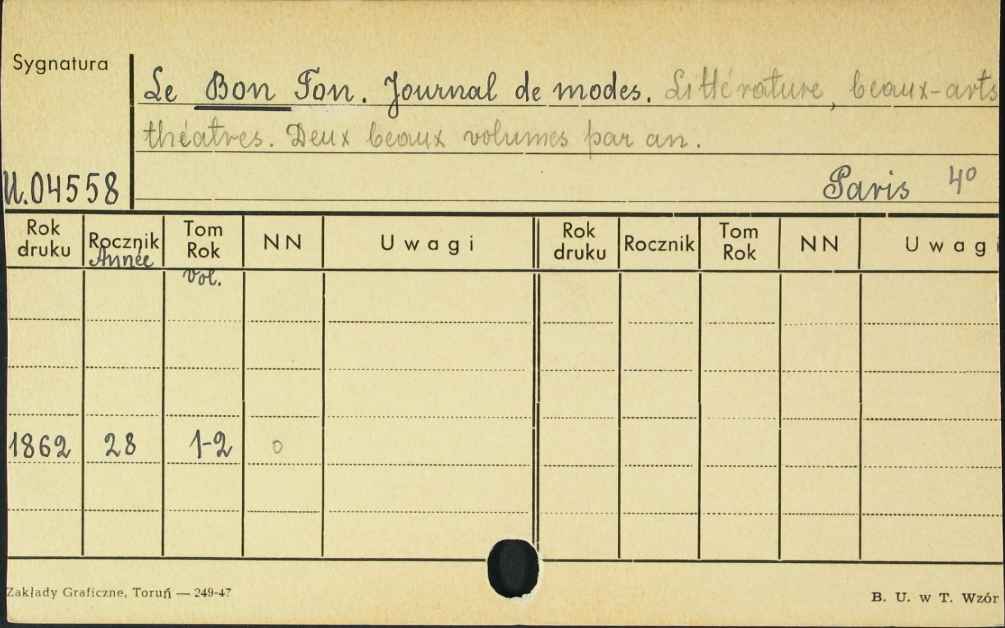 Sygnatura
Le Bon Ton. Journal de modes. Littérature, beaux-arts
théatres. Deux beaux volumes par an.
U.04558 Paris 4º
Rok druku Rocznik Année Tom Rok Vol. NN Uwagi Rok druku Rocznik Tom Rok NN Uwagi
1862 28 1-2 0
Zakłady Graficzne, Toruń — 249-47 B. U. w T. Wzór